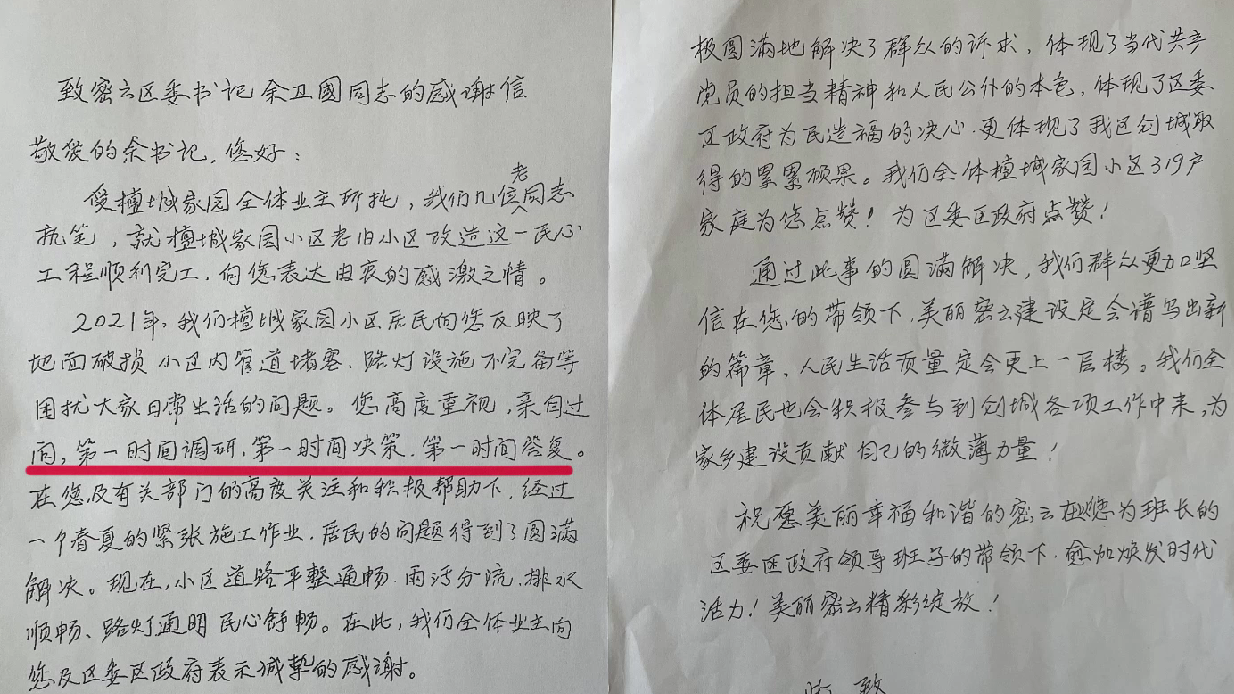 致密云区委书记余卫國同志的感谢信
敬爱的余书记,您好:
受檀城家园全体业主所托,我们几位老同志
执笔,就檀城家园小区老旧小区改造这一民心
工程顺利完工,向您表达由衷的感激之情。
2021年,我们檀城家园小区居民向您反映了
地面破损、小区内管道堵塞、路灯设施不完备等
困扰大家日常生活的问题。您高度重视,亲自过
问,第一时间调研,第一时间决策,第一时间答复。
在您及有关部门的高度关注和积极帮助下,经过
一个春夏的紧张施工作业,居民的问题得到了圆满
解决。现在,小区道路平整通畅、雨污分流、排水
顺畅、路灯通明、民心舒畅。在此,我们全体业主向
您及区委区政府表示诚挚的感谢。
极圆满地解决了群众的诉求,体现了当代共产
党员的担当精神和人民公仆的本色,体现了区委、
区政府为民造福的决心,更体现了我区创城取
得的累累硕果。我们全体檀城家园小区319户
家庭为您点赞!为区委区政府点赞!
通过此事的圆满解决,我们群众更加坚
信在您的带领下,美丽密云建设定会谱写出新
的篇章、人民生活质量定会更上一层楼。我们全
体居民也会积极参与到创城各项工作中来,为
家乡建设贡献自己的微薄力量!
祝愿美丽幸福和谐的密云在您为班长的
区委区政府领导班子的带领下,愈加焕发时代
活力!美丽密云精彩绽放!
致